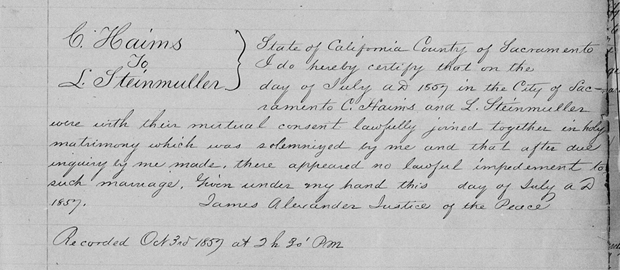 C. Haims
To
L. Steinmuller
State of California County of Sacramento
I do hereby certify that on the
day of July A D 1857 in the City of Sac-
ramento C. Haims and L. Steinmuller
were with their mutual consent lawfully joined together in holy
matrimony which was solemnized by me and that after due
inquiry by me made, there appeared no lawful impediement to
such marriage. Given under my hand this day of July A D
1857. James Alexander Justice of the Peace
Recorded Oct 3rd 1857 at 2 h 20' P.M